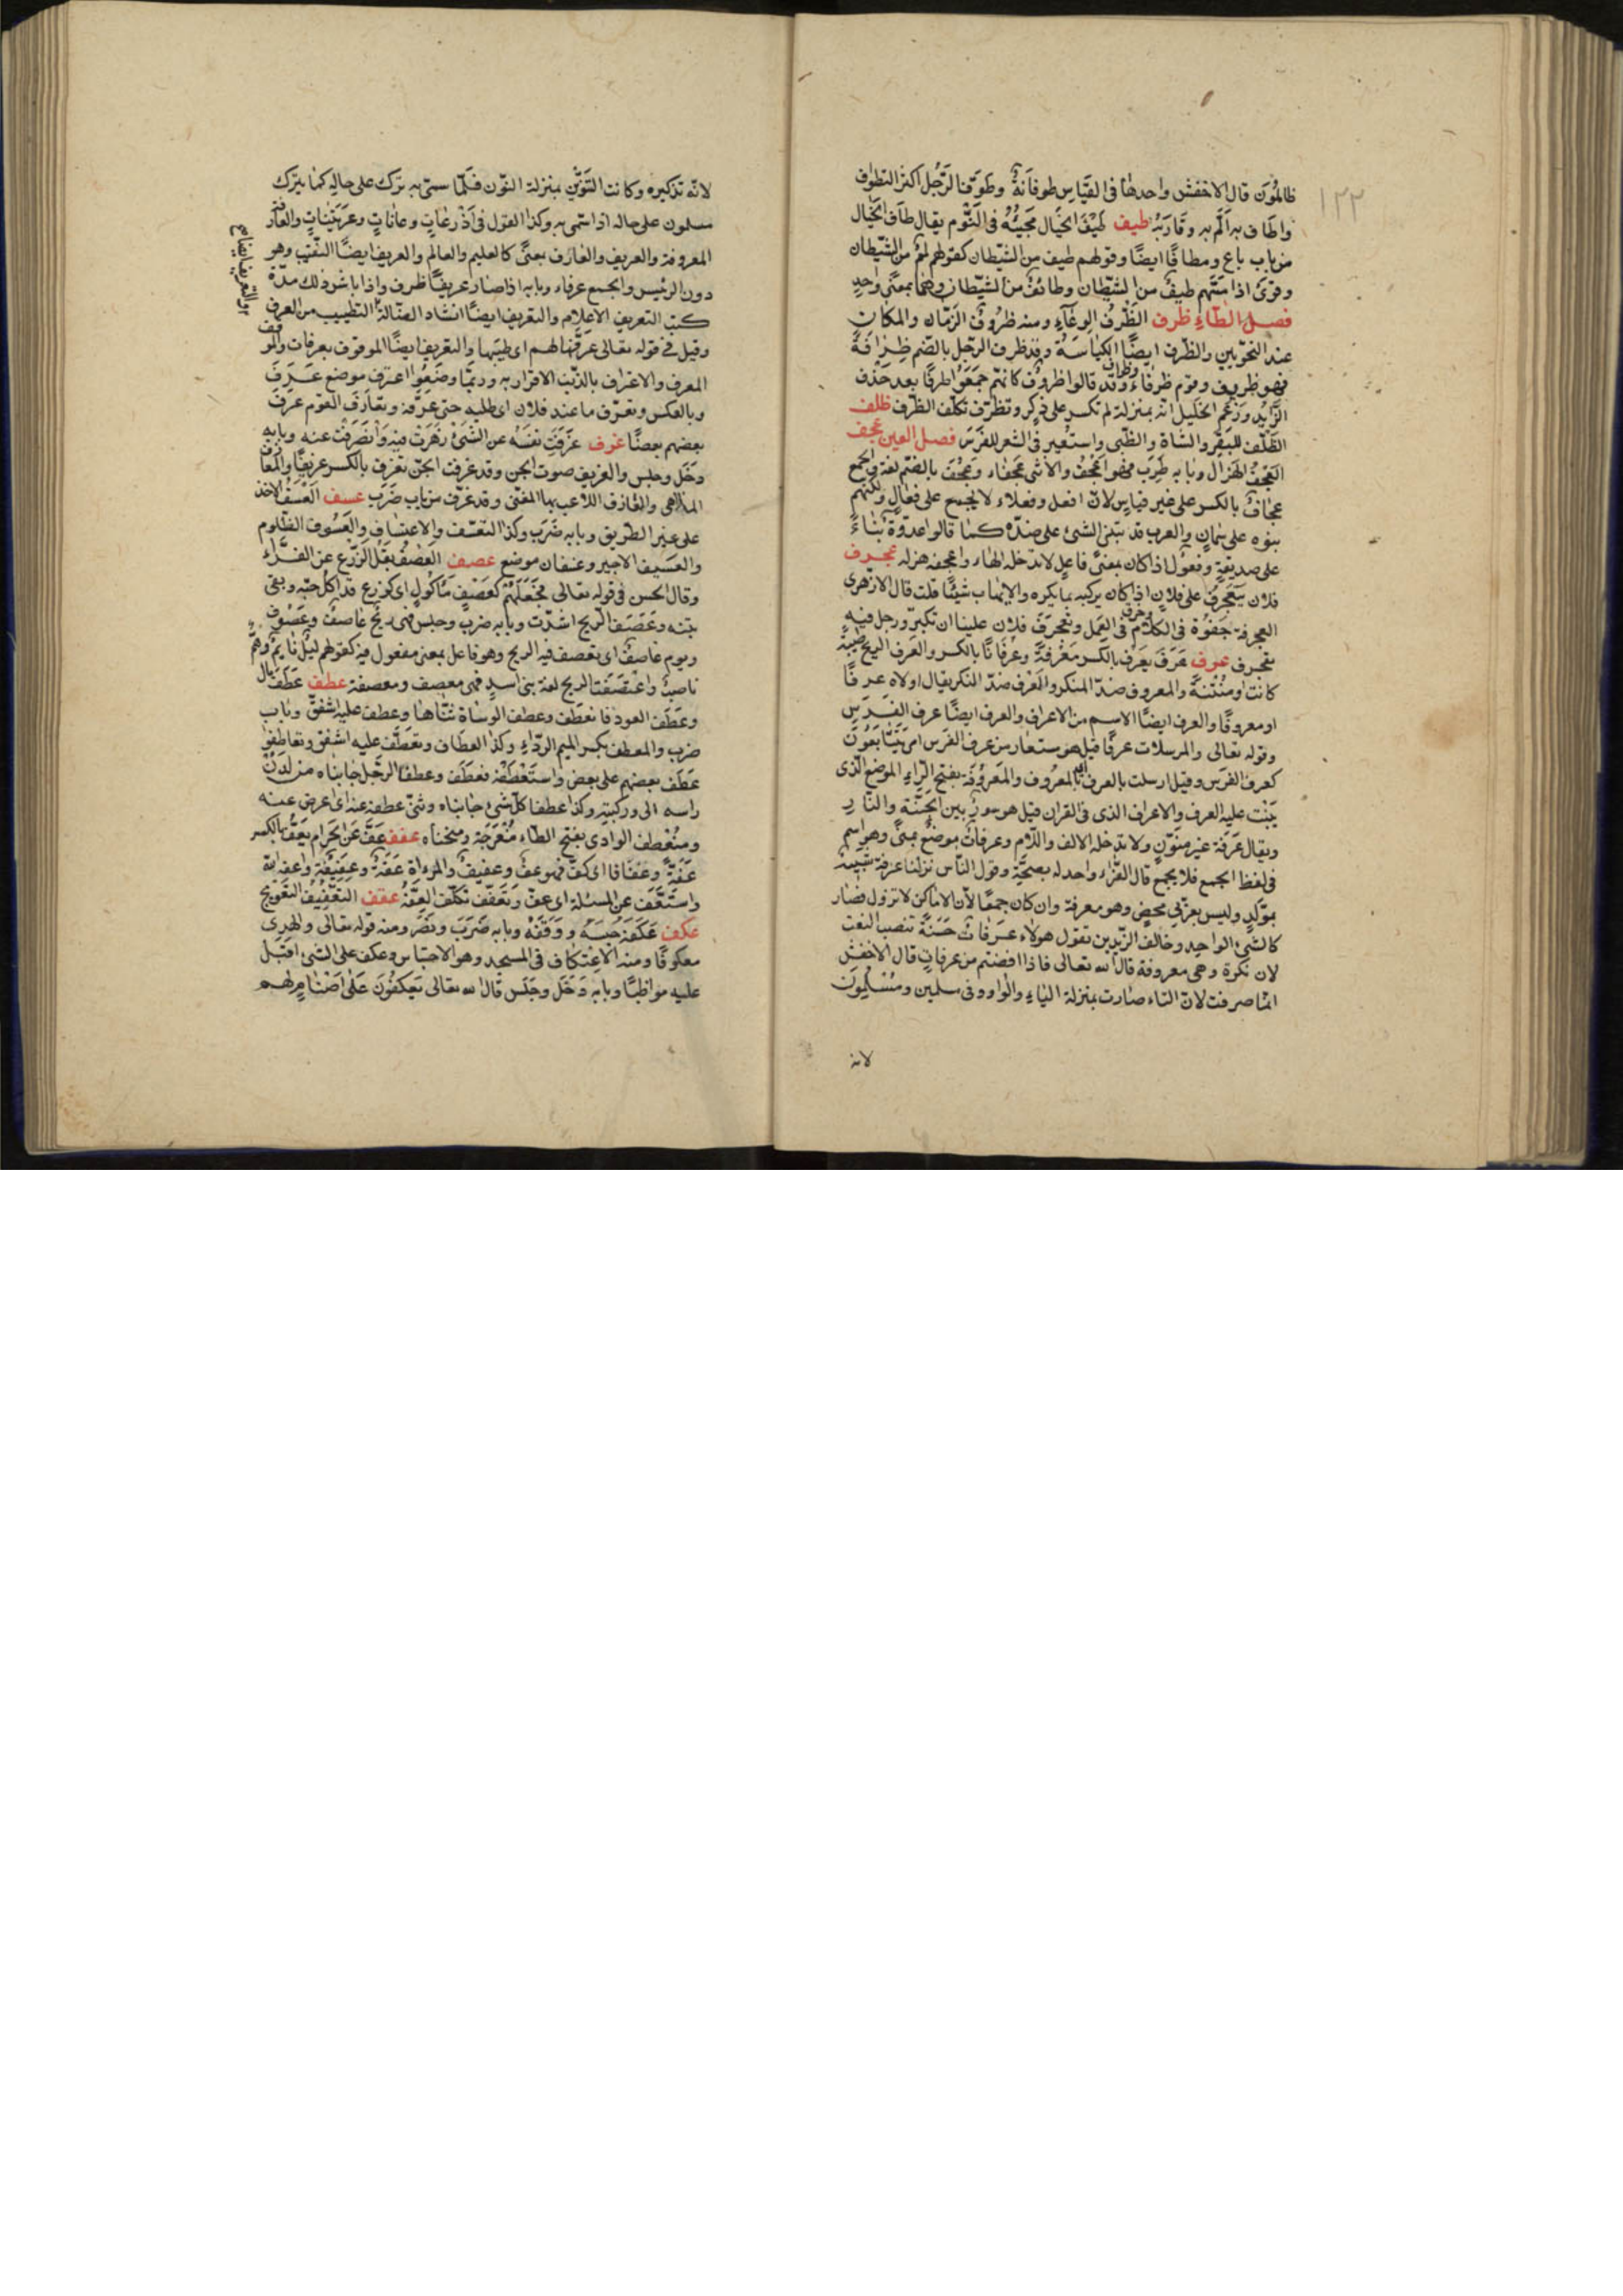 ١٢٢
ظالمون قال الاخفش واحدها فى القياس طوفانة وطوّف الرّجل اكثر التطواف
واطاف به المّ به وقاربه طيف طيف الخيال مجيئه فى النّوم يقال طاف الخيال
من باب باع ومطافا ايضا وقولهم طيف من الشيطان كقولهم لمم من الشّيطان
وقرئ اذا مسّهم طيف من الشيّطان وطائف من الشيّطان وهما بمعنى واحد
فصل الظّاء ظرف الظّرف الوعاء ومنه ظروف الزّمان والمكان
عند النحوّيين والظّرف ايضا الكياسة وقد ظرف الرّجل بالضّم ظرافة
فهو ظريف وقوم ظرفاء وظراف وقد قالوا ظروف كانّهم جمعوا ظرفا بعد حذف
الزّايد وزعم الخليل انّه بمنزلة لم تكسر على ذكر وتظرّف تكلّف الظّرف ظلف
الظّلف للبقر والشاة والظّبى واستعير فى الشعر للفرس فصل العين عجف
العجف الهزال وبابه طرب فهو اعجف والانثى عجفاء وعجف بالضّم لغة والجمع
عجاف بالكسر على غير قياس لانّ افعل وفعلاء لا يجمع على فعال ولكنّهم
بنوه على سمان والعرب قد تبنى الشئ على ضدّه كما قالوا عدوّة بناء
على صديقة وفعول اذا كان بمعنى فاعل لا تدخله الهاء واعجفه هزله عجرف
فلان يتعجرف على فلان اذا كان يركبه بما يكره ولا يهاب شيئا قلت قال الازهرى
العجرفة جفوة فى الكلام وخرق فى العمل وتعجرف فلان علينا ان تكبّر ورجل فيه
تعجرف عرف عرف يعرف بالكسر معرفة وعرفانا بالكسر والعرف الريح طيّبة
كانت او منتنة والمعروف ضدّ المنكر والعرف ضدّ النكر يقال اولاه عرفا
او معروفا والعرف ايضا الاسم من الاعراف والعرف ايضا عرف الفرس
وقوله تعالى والمرسلات عرفا قيل هو مستعار من عرف الفرس اى يتتابعون
كعرف الفرس وقيل ارسلت بالعرف اى بالمعروف والمعروفة بفتح الرّاء الموضع الّذى
ينبت عليه العرف والاعراف الذى فى القران قيل هو سور بين الجنّة والنّار
ويقال عرفة غير منوّن ولا تدخله الالف واللّام وعرفات موضع بمنى وهو اسم
فى لفظ الجمع فلا يجمع قال الفرّاء واحد له بصحّة وقول النّاس نزلنا عرفة شبيه
بمولّد وليس بعربّى محض وهو معرفة وان كان جمعا لانّ الاماكن لا تزول فصار
كالشئ الواحد وخالف الزّيدين تقول هولاء عرفات حسنة تنصب النعت
لان نكرة وهى معروفة قال الله تعالى فاذا افضتم من عرفات قال الاخفش
انّما صرفت لانّ التاء صارت بمنزلة الياء والواو وفى مسلمين ومسلمون
لانه
لانّه تذكيره وكانت التّنوين بمنزلة النّون فلمّا سمّى به ترك على حاله كما يترك
مسلمون على حاله اذا سمّى به وكذا القول فى اذرعات وعانات وعريتنات والعارفة
المعروفة والعريف والعارف بمعنى كالعليم والعالم والعريف ايضا النّقيب وهو
دون الرئيس والجمع عرفاء وبابه اذا صار عريفا ظرف واذا باشر ذلك مدّة
كتب التعريف الاعلام والتعريف ايضا انشاد الضّالة والتطييب من العرف
وقيل فى قوله تعالى عرّفها لهم اى طيّبها والتعريف ايضا الموقوف بعرفات والموقف
المعرف والاعتراف بالذّنب الاقرار به وربّما وضعوا اعترف موضع عرف
وبالعكس وتعرّف ما عند فلان اى طلبه حتى عرّفه وتعارف القوم عرف
بعضهم بعضا عزف عزفت نفسه عن الشئ زهرت فيه وانصرفت عنه وبابه
دخل وجلس والعزيف صوت الجن وقد عزفت الجنّ تعزف بالكسر عزيفا والمعازف
الملاهى والعازف اللّاعب بها المغنّى وقد عزف من باب ضرب عسف العسف الاخذ
على غير الطّريق وبابه ضرب وكذا التعسّف والاعتساف والعسوف الظّلوم
والعسيف الاجير وعسفان موضع عصف العصف بقل الزّرع عن الفرّاء
وقال الحسن فى قوله تعالى فجعلهم كعصف مأكول اى كزرع قد اكل حبّه وبقى
تبنه وعصفت الرّيح اشتدّت وبابه ضرب وجلس فهى ريح عاصف وعصوف
ويوم عاصف اى تعصف فيه الريح وهو فاعل بمعنى مفعول فيه كقولهم ليل نايم وهمّ
ناصب واعصفت الريح لغة بنى اسد فهى معصف ومعصفة عطف عطف مال
وعطف العود فانعطف وعطف الوساة ثناها وعطف عليه اشفق وباب
ضرب والمعطف بكسر الميم الردّاء وكذا العطاف وتعطّف عليه اشفق وتعاطفوا
عطف بعضهم على بعض واستعطفه فعطف وعطفا الرجّل جانباه من لدن
راسه الى وركيه وكذا عطفا كلّ شئ جانباه وثنى عطفه عنه اى اعرض عنه
ومنعطف الوادى بفتح الطّاء منعرجه ومنحناه عفف عفّ عن الحرام يعفّ بالكسر
عفّة وعفافا اى كفّ فهو عفّ وعفيف والمرءاة عفّة وعفيفة واعفه الله
واستعفف عن المسئلة اى عفّ وتعفّف تكلّف العفّة عقف التعقيف التعويج
عكف عكفه حبسه ووقفه وبابه ضرب ونصر ومنه قوله تعالى والهدى
معكوفا ومنه الاعتكاف فى المسجد وهو الاحتباس وعكف على الشئ اقبل
عليه مواظبا وبابه دخل وجلس قال الله تعالى يعكفون على اصنام لهم